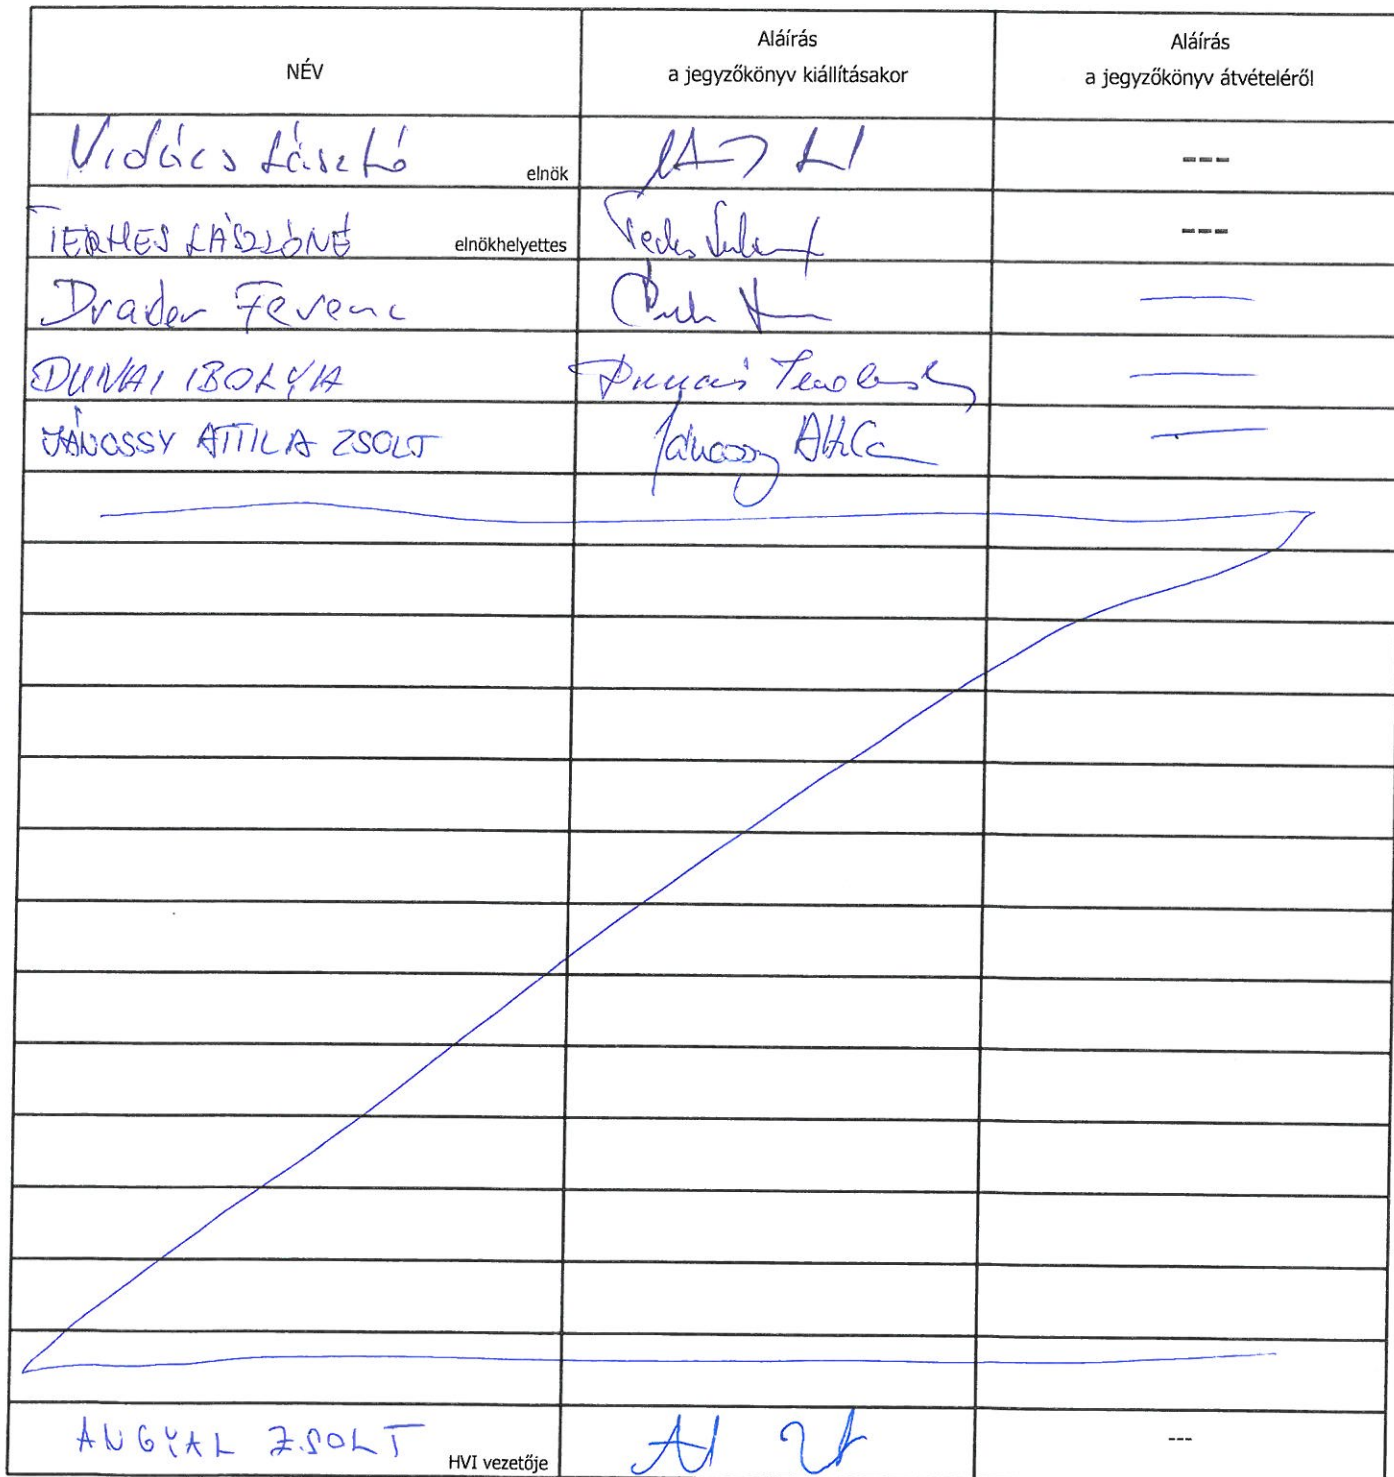 NÉV
Aláírás
a jegyzőkönyv kiállításakor
Aláírás
a jegyzőkönyv átvételéről
Vidács László elnök
---
TERMES LÁSZLÓNÉ elnökhelyettes
---
Ferenc
DUNAI IBOLYA
JÁNOSSY ATTILA ZSOLT Jánossy Attila
ANGYAL ZSOLT HVI vezetője
---